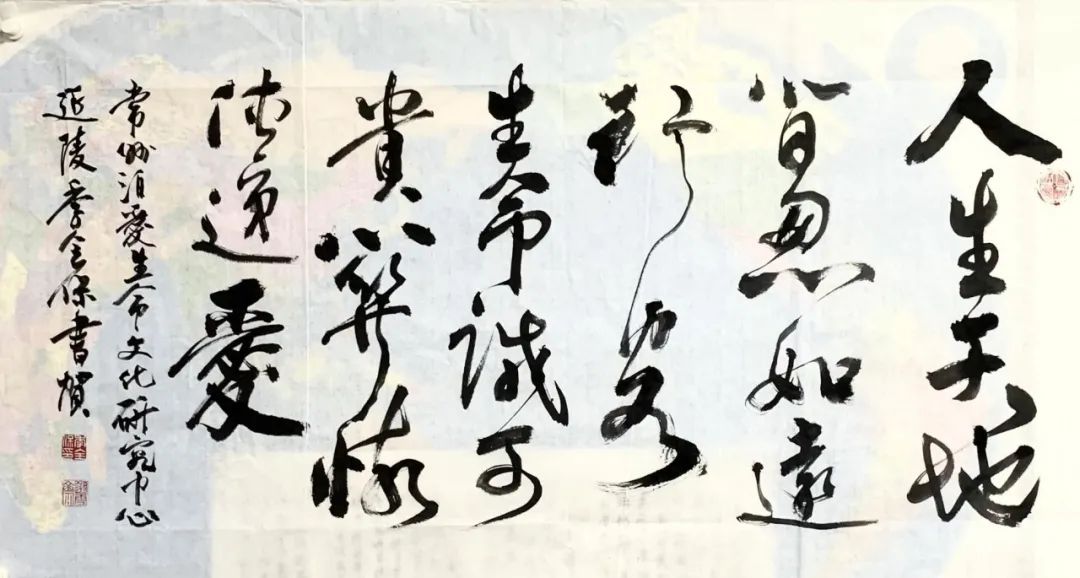 人生天地
間忽如遠
行客
生命誠可
貴關懷
傳遞愛
常州泊愛生命文化研究中心
延陵李全保書賀